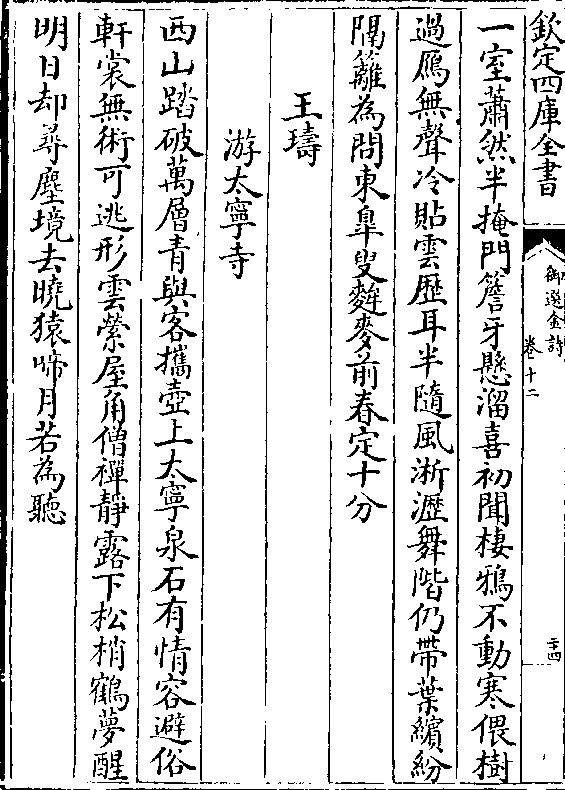 欽定四庫全書
御選金詩
卷十二
二十四
一室蕭然半掩門簷牙懸溜喜初聞棲鴉不動寒偎樹
過鴈無聲冷貼雲歴耳半隨風淅瀝舞階仍帶葉繽紛
隔籬為問東臯叟麰麥前春定十分
王璹
游太寧寺
西山踏破萬層青與客攜壺上太寧泉石有情容避俗
軒裳無術可逃形雲縈屋角僧禪靜露下松梢鶴夢醒
明日却尋塵境去曉猿啼月若為聽